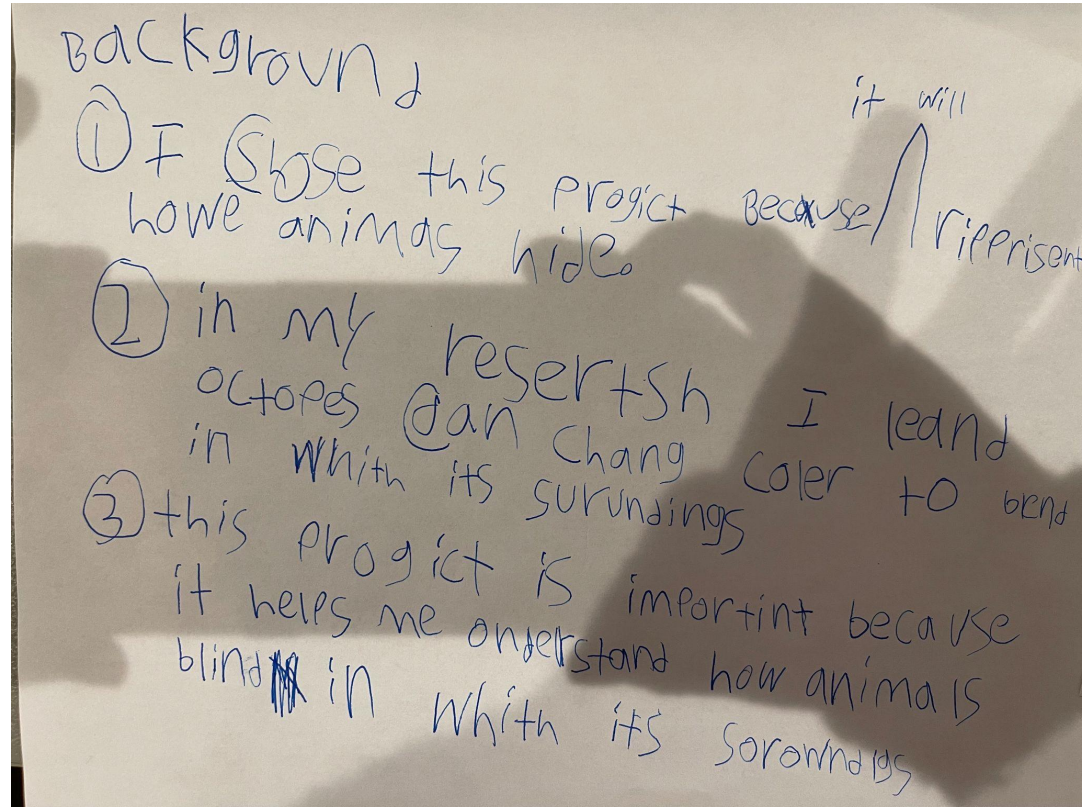 Background
① I Shose this progict Because it will ripprisent
howe animas hide.
② in my resertsh I leand
octopes Can Chang coler to bend
in whith its surundings
③ this progict is importint because
it helps me onderstand how animals
blind in whith its sorowndigs